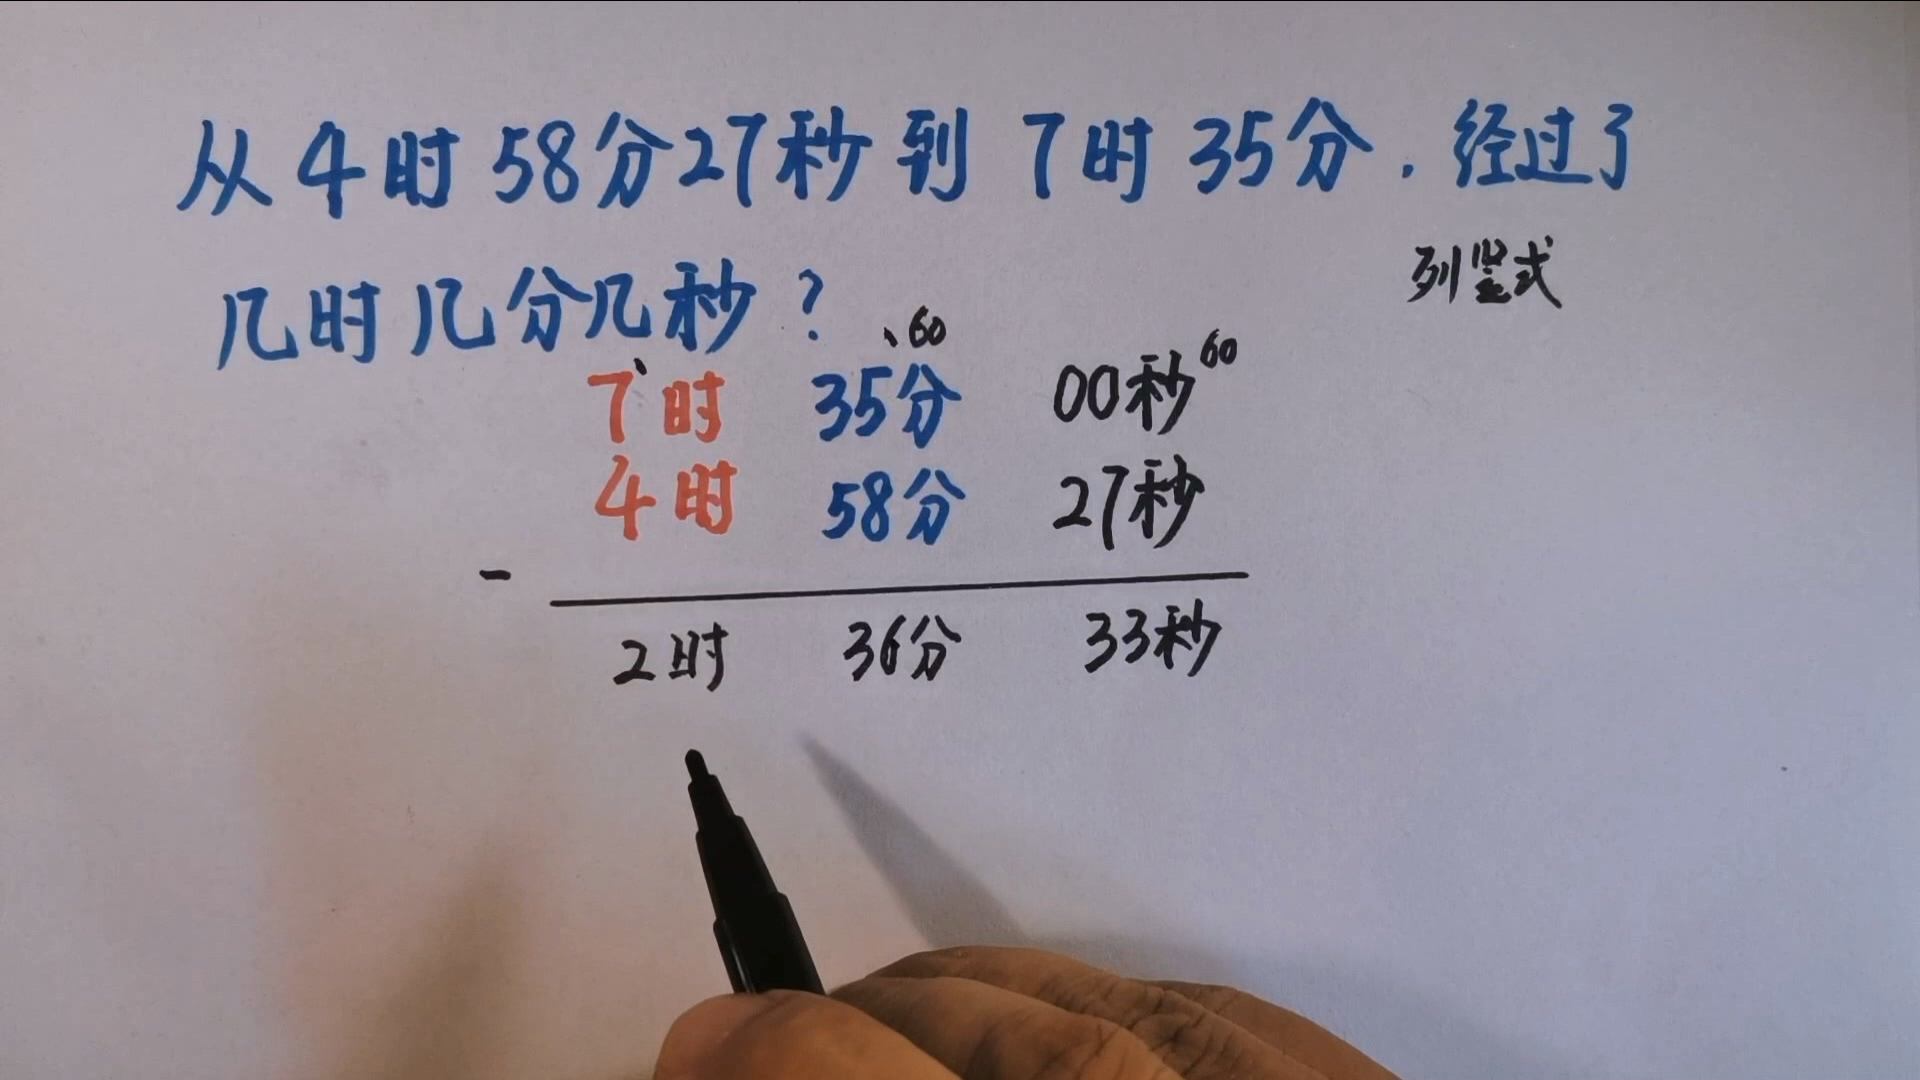 从4时58分27秒到7时35分.经过了
列竖式
几时几分几秒?
60 60
7时 35分 00秒
4时 58分 27秒
-
2时 36分 33秒